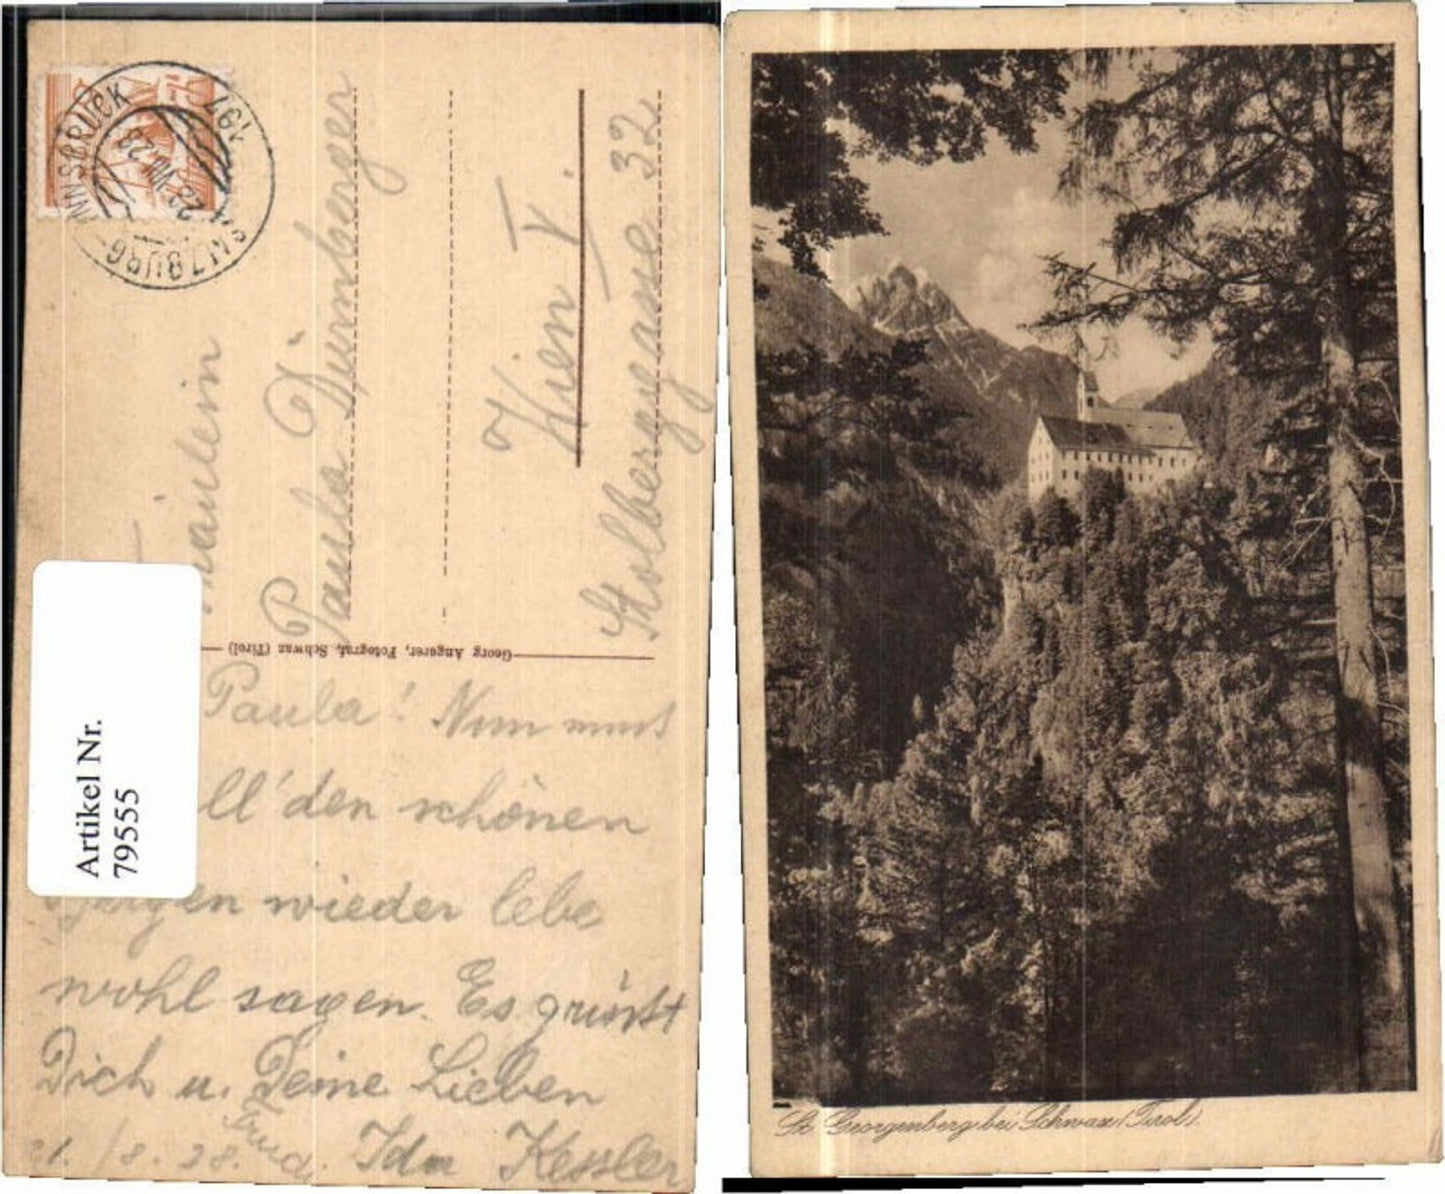 INNSBRUCK
197
SALZBURG
22.VIII.28
Fräulein
Paula Dürnberger
Wien V.
Stolberggasse 32
Georg Angerer, Fotograf, Schwaz (Tirol)
Artikel Nr.
79555
Paula! Nun muss
all' den schönen
wieder lebe
wohl sagen. Es grüsst
Dich u. Deine Lieben
21./8.28. Ida Kessler
St. Georgenberg bei Schwaz (Tirol).